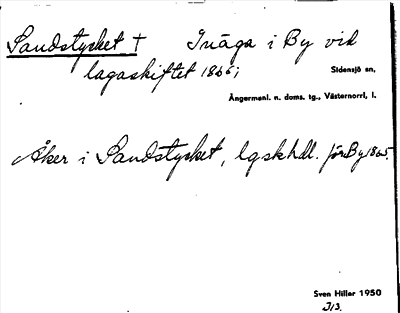 Sandstycket † Inäga i By vid
lagaskiftet 1865;
Sidensjö sn,
Ångermanl. n. doms. tg., Västernorrl. l.
Åker i Sandstycket, lgskhdl. för By 1865.
Sven Hiller 1950
J13.